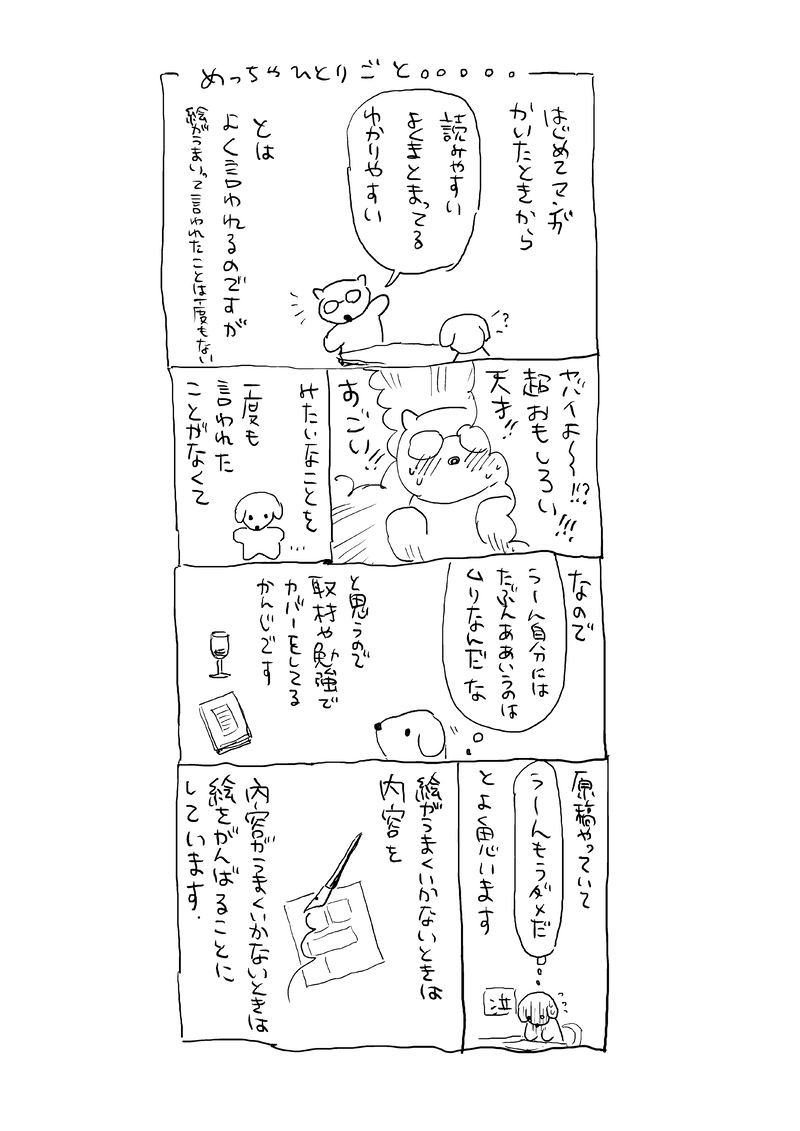 めっちゃひとりごと。。。。。
はじめてマンガ
かいたときから
読みやすい
よくまとまってる
わかりやすい
とは
よく言われるのですが
絵がうまいって言われたことは一度もない
?
ヤバイよ〜!!?
超おもしろい!!!
天才!!
すごい!!
みたいなことを
一度も
言われた
ことがなくて
なので
うーん自分には
たぶんああいうのは
ムリなんだな
と思うので
取材や勉強で
カバーをしてる
かんじです
原稿やっていて
うーんもうダメだ
とよく思います
泣
絵がうまくいかないときは
内容を
内容がうまくいかないときは
絵をがんばることに
しています.